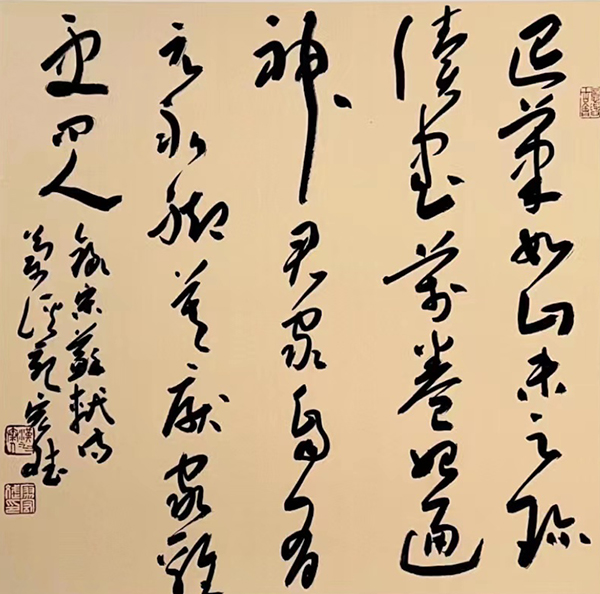 退筆如山未足珍
讀書萬卷始通
神君家自有
元和脚莫厭家雞
更問人
錄宋蘇軾詩